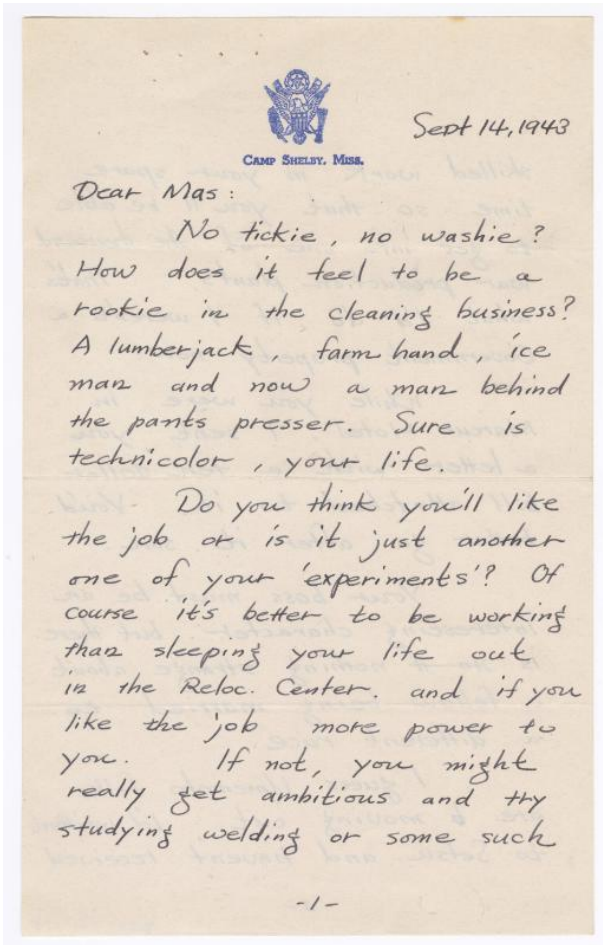 Sept 14, 1943
CAMP SHELBY, MISS.
Dear Mas:
No tickie, no washie?
How does it feel to be a
rookie in the cleaning business?
A lumberjack, farm hand, ice
man and now a man behind
the pants presser. Sure is
technicolor, your life.
Do you think you'll like
the job or is it just another
one of your 'experiments'? Of
course it's better to be working
than sleeping your life out
in the Reloc. Center. and if you
like the job more power to
you. If not, you might
really get ambitious and try
studying welding or some such
-1-